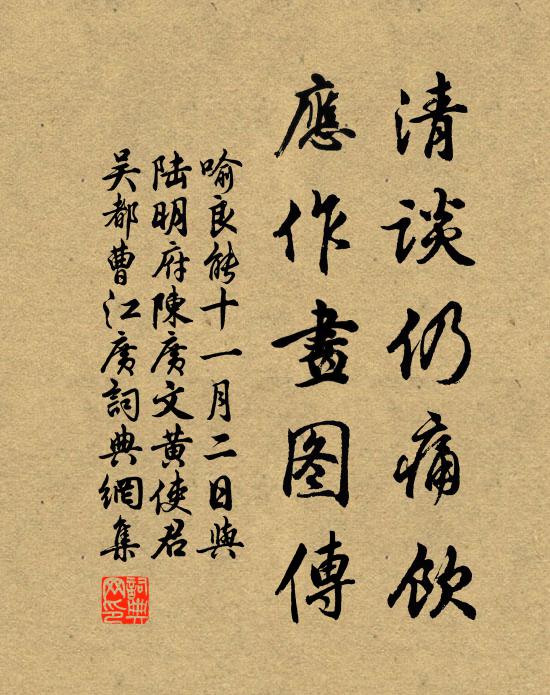 清談仍痛飲
應作畫图傳
喻良能十一月二日與
陸明府陳廣文黄使君
吴都曹江廣詞典網集
詞典
网印